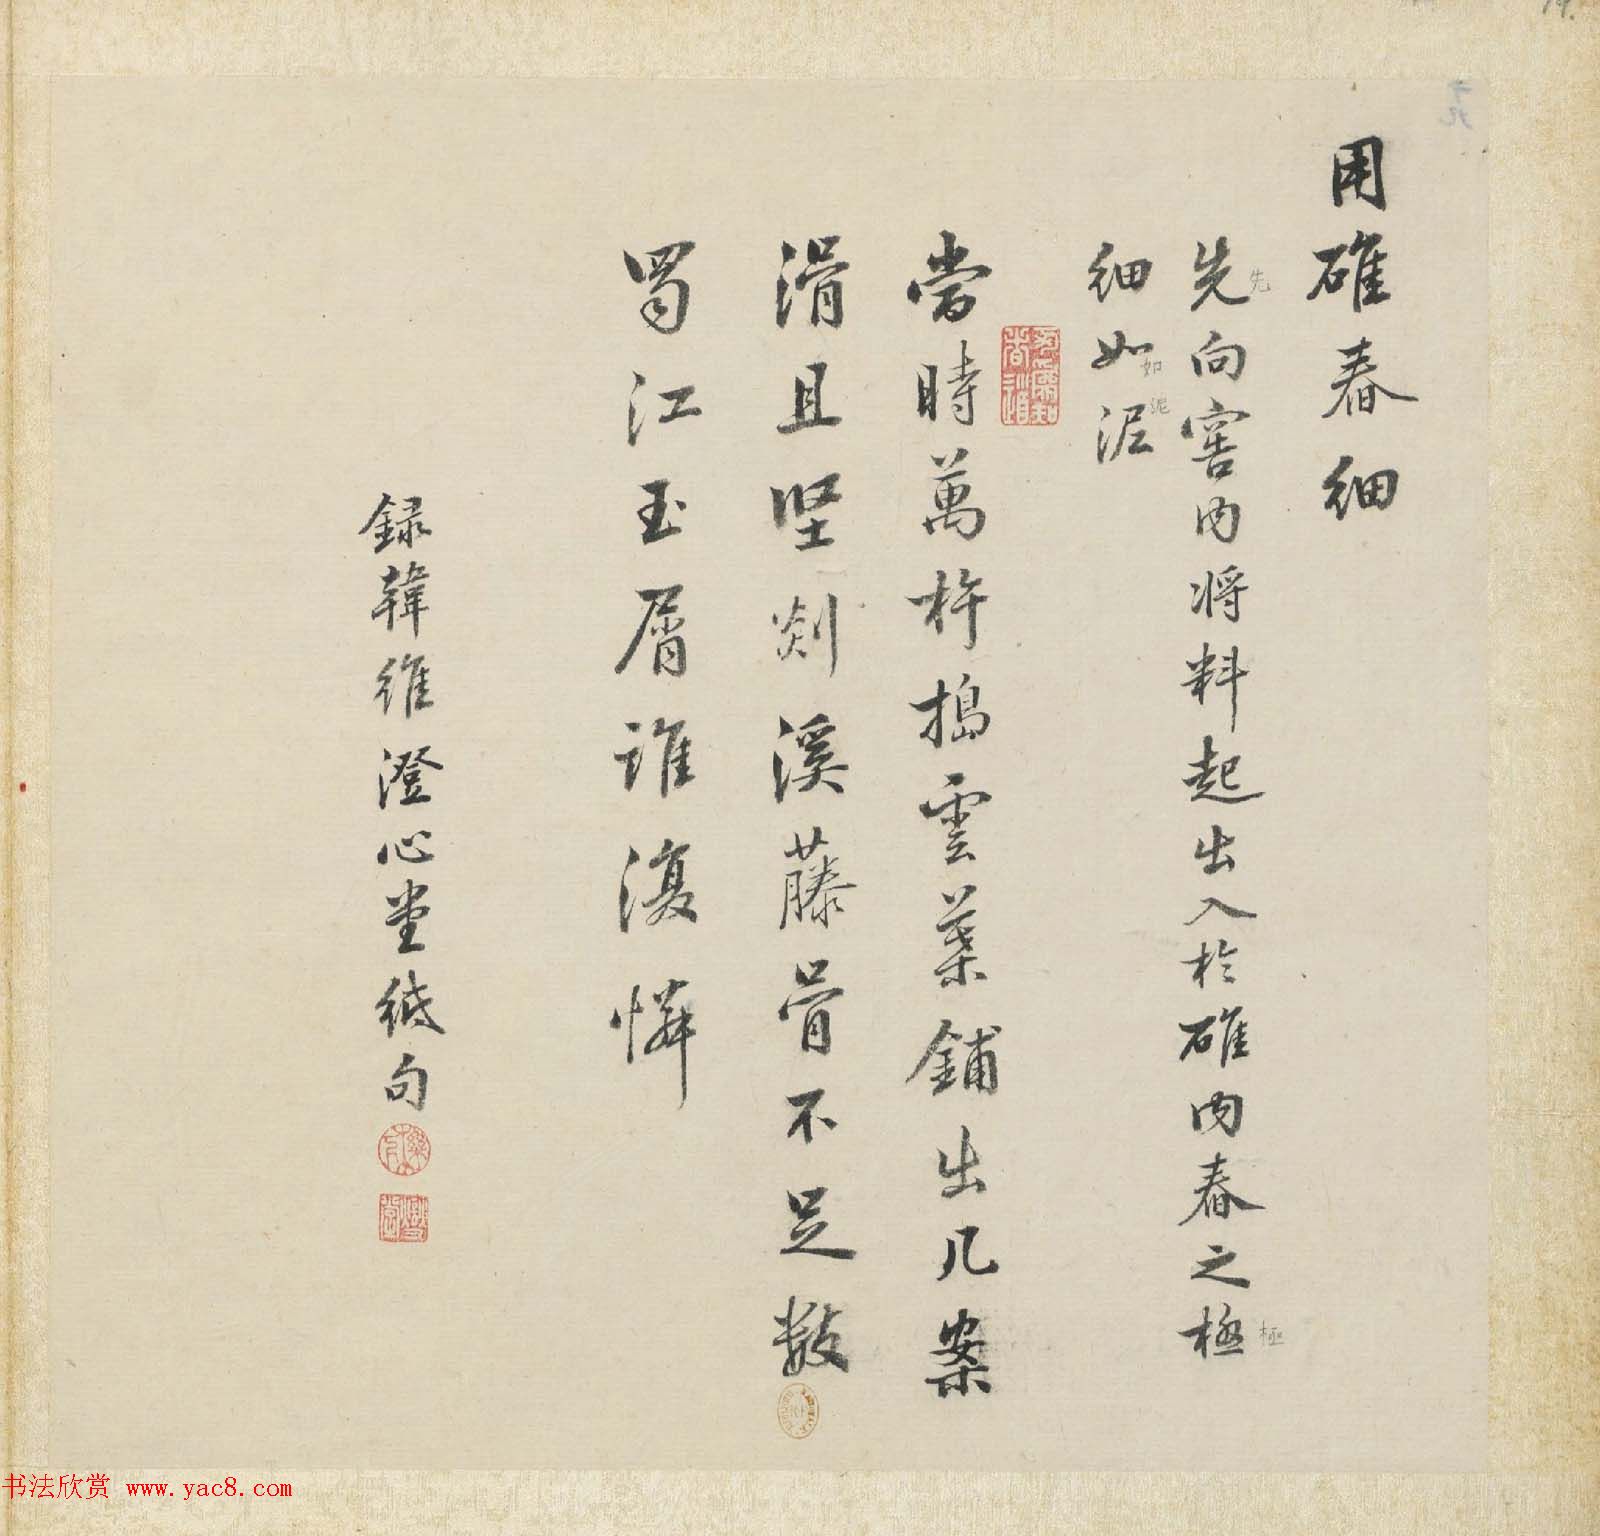 用碓舂細
先向窖內將料起出入於碓內舂之極
細如泥
當時萬杵搗雲葉鋪出几案
滑且坚剡溪藤骨不足數
蜀江玉屑誰復憐
錄韓維澄心堂紙句
先
極
如
泥
十九
19.
书法欣赏 www.yac8.com